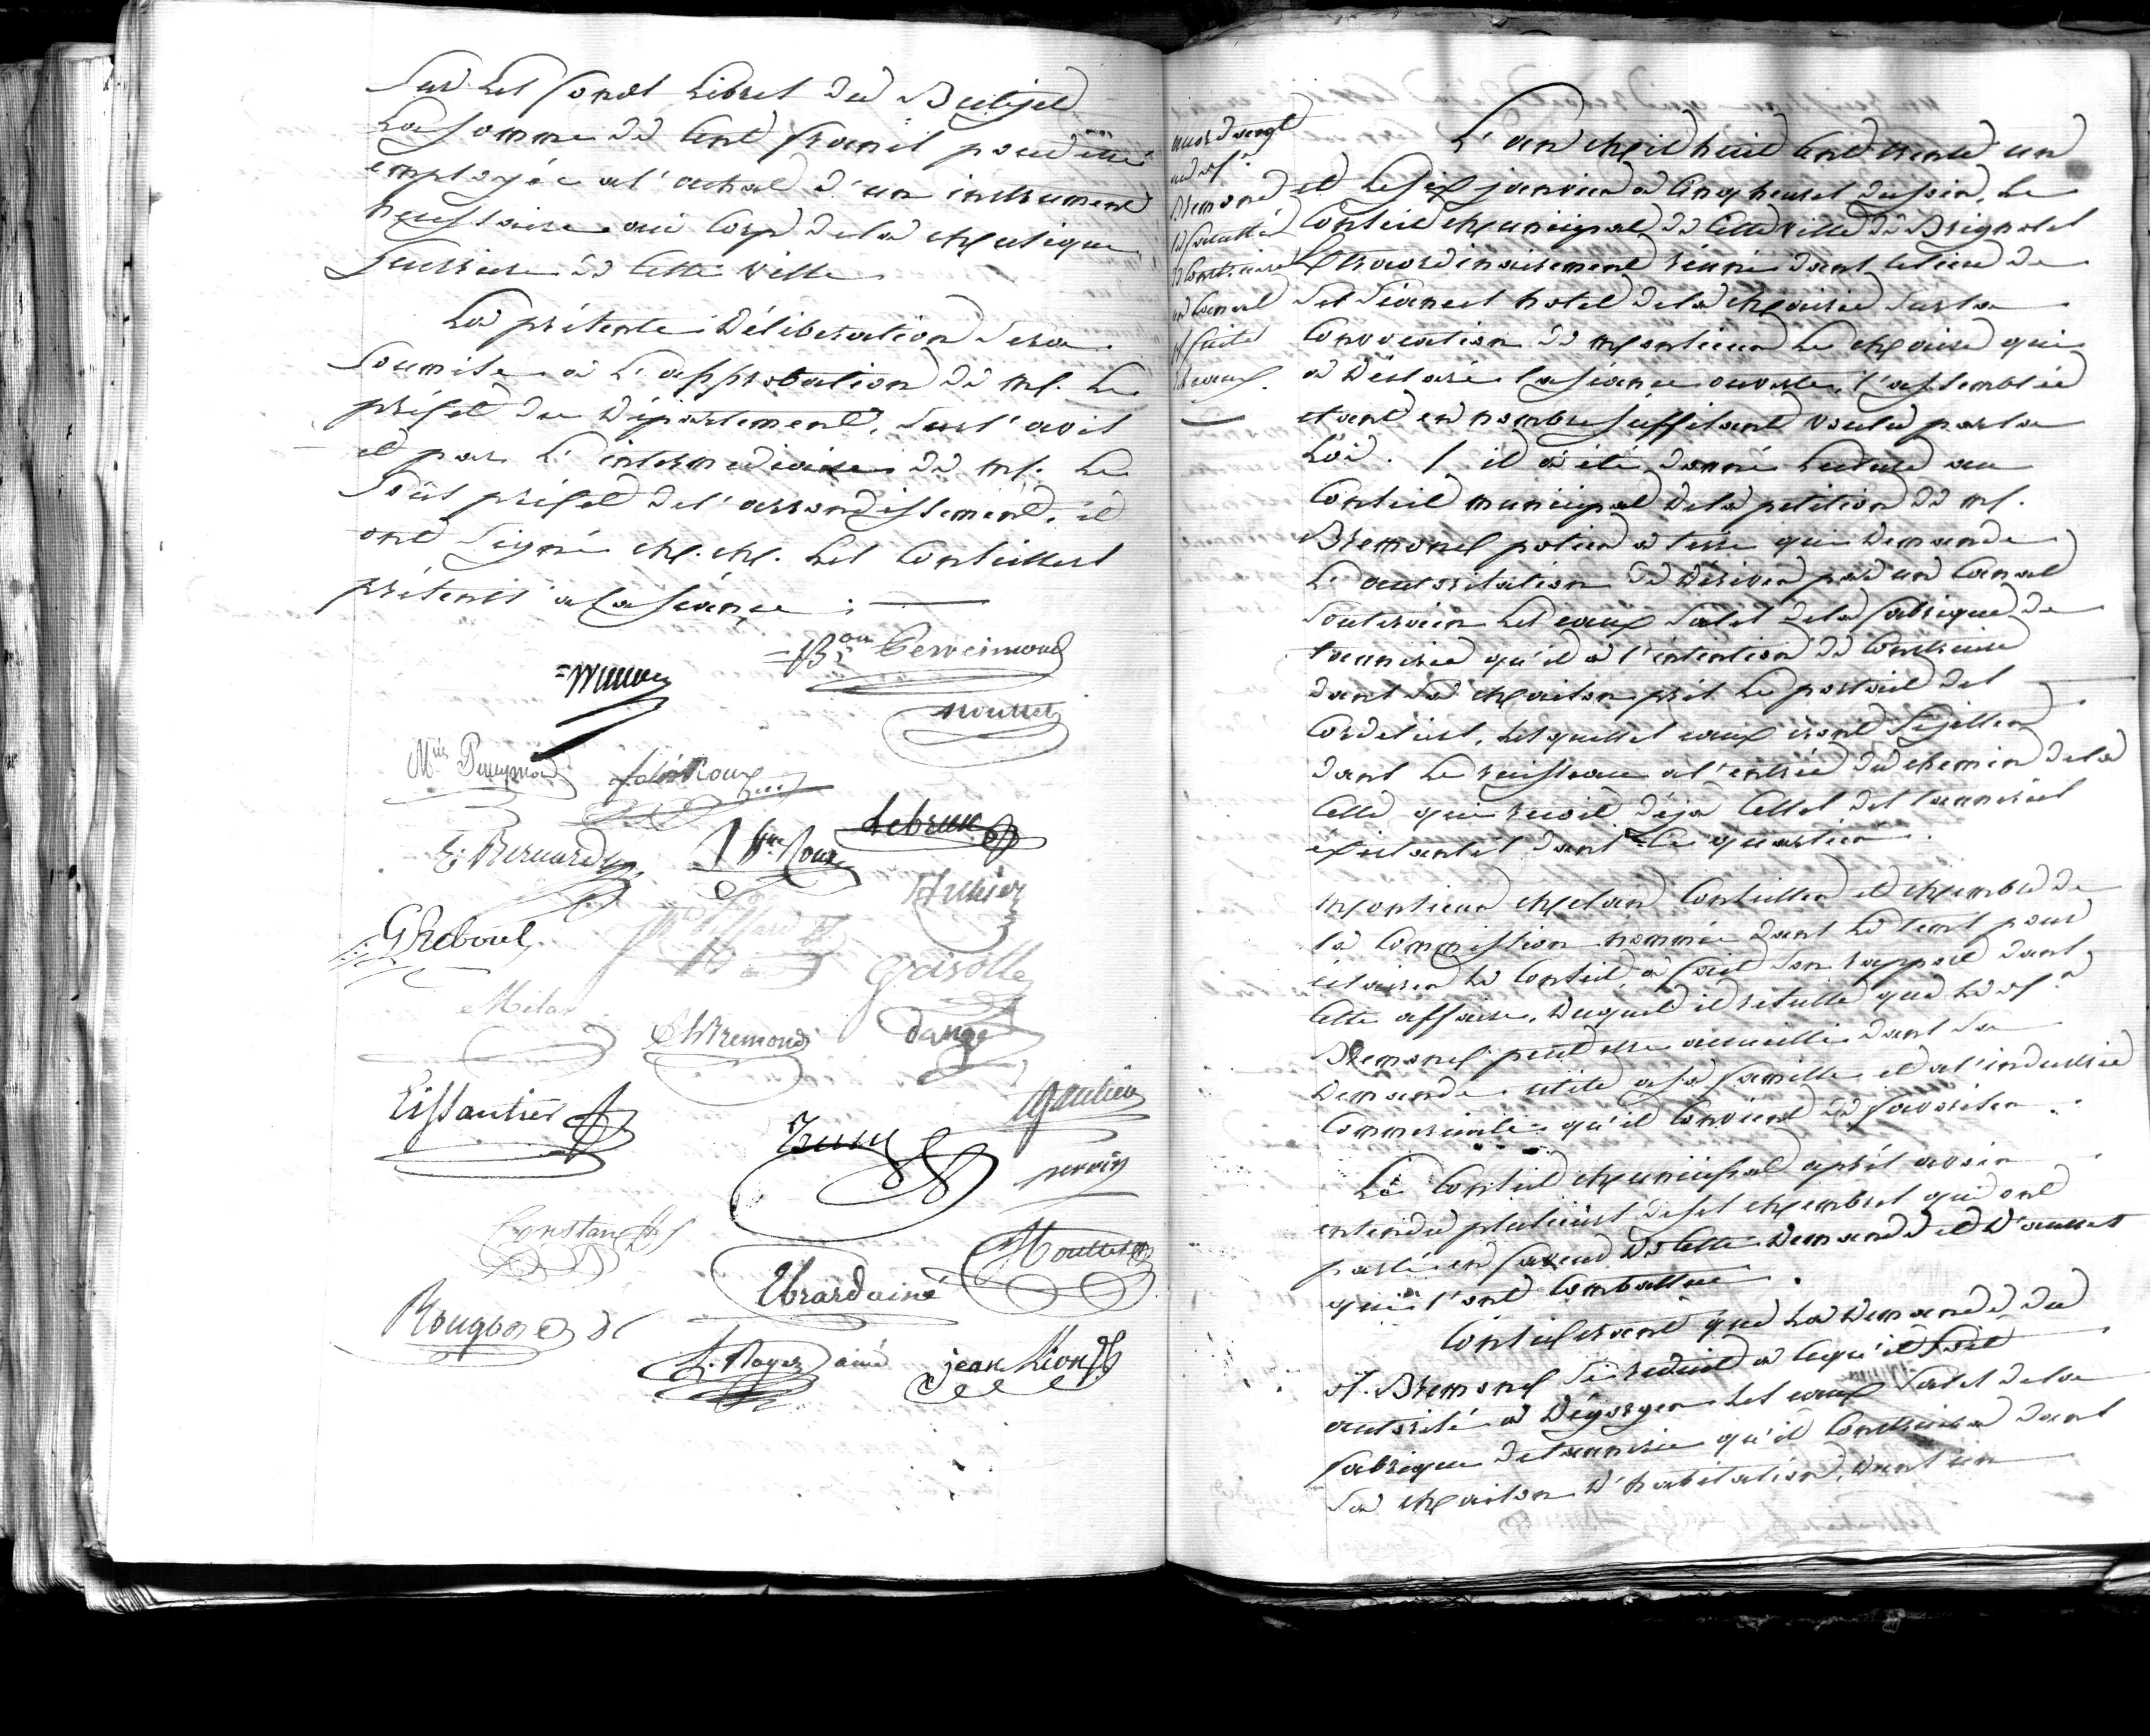 Sur les fonds libres du Budjet
La somme de Cent francs pour être
employée a l'achat d'un instrument
necessaire au Corp de la Musique
Guerriere de Cette ville.
La présente Délibération sera
Soumise à L'approbation de Mr. Le
préfet du Département, sur l'avis
et par L'intermédiaire de Mr. Le
Sous préfet de l'arrondissement, et
ont Signé MM. Les Conseillers
présents a la séance.
Mouttet
Féli Roux
Lebrun
E. Bernard
G Reboul
grisolle
Melan
Bremond
Dauge
Eissautier
Gautier
perrin
Constans
Ebrard ainé
Mouttet
Rougon
L. Roger ainé
jean Lion
accordant
au Sr.
Bremond
la faculté
de Construire
un Canal
de fuite
d'eaux.
L'an Mil huit Cent trente un
et Le six janvier à Cinq heures du soir, Le
Conseil Municipal de Cette ville de Brignoles
Extraordinairement réuni dans le lieu de
Ses Séances hotel de la Mairie Sur la
Convocation de Monsieur Le Maire qui
a Déclaré la séance ouverte, l'assemblée
etant en nombre suffisant voulu par la
Loi. il a été donné Lecture au
Conseil municipal de la petition de Mr.
Bremond potier à terre qui Demande
L'autorisation de Dériver par un Canal
Souterrain Les eaux Sales de la fabrique de
tannerie qu'il a l'intention de Construire
dans sa Maison près Le portail des
Cordeliers, Lesquelles eaux iront Se jetter
dans Le ruisseau a l'entrée du chemin de la
Celle qui reçoit déja Celles des tanneries
éxistantes dans Ce quartier.
Monsieur Melan Conseiller et Membre de
la Commission nommée dans Le tems pour
éclairer Le Conseil, a fait Son rapport dans
Cette affaire, Duquel il résulte que Le Sr.
Bremond peut être accueilli dans Sa
Demande utile a sa famille et a l'industrie
Commerciale qu'il Convient de favoriser.
Le Conseil Municipal après avoir
entendu plusieurs de ses Membres qui ont
parlé en faveur de Cette Demande et D'autres
qui l'ont Combattue.
Considerant que La Demande du
Sr. Bremond Se reduit a Ce qu'il Soit
autorisé a Dégorger Les eaux Sales de la
fabrique de tannerie qu'il Construira dans
Sa Maison D'habitation, Dans un